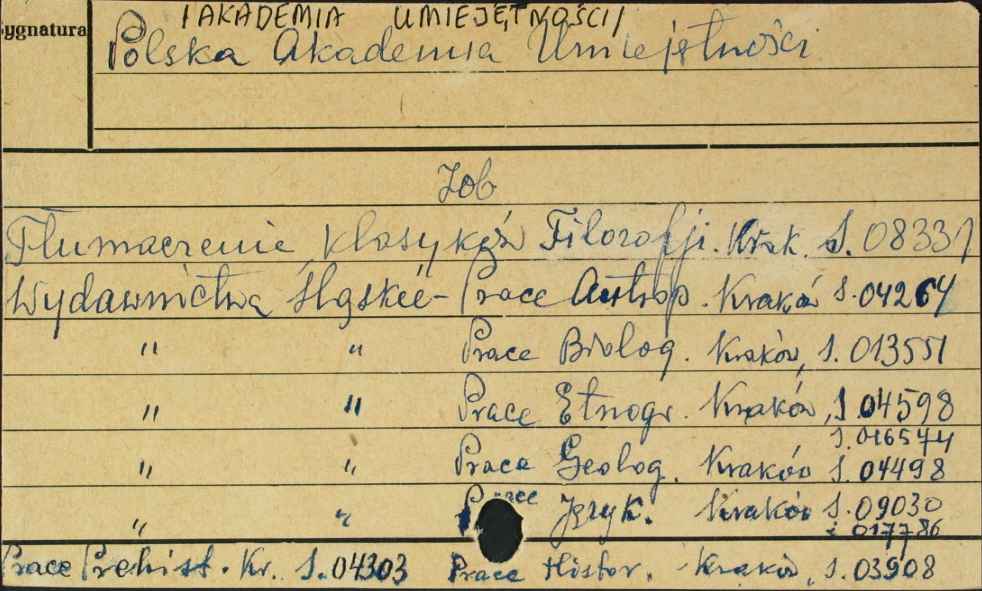 /AKADEMIA UMIEJĘTNOŚCI/
Sygnatura
Polska Akademia Umiejętności
Zob
Tłumaczenie klasyków Filozofji. Krak. S. 08331
Wydawnictwa Śląskie - Prace Antrop. Kraków S. 04264
" " Prace Biolog. Kraków, S. 013551
" " Prace Etnogr. Kraków, S. 04598
S. 016544
" " Prace Geolog. Kraków S. 04498
" " Prace Język. Kraków S. 09030
i 017786
Prace Prehist. Kr. S. 04303 Prace Histor. Kraków, S. 03908